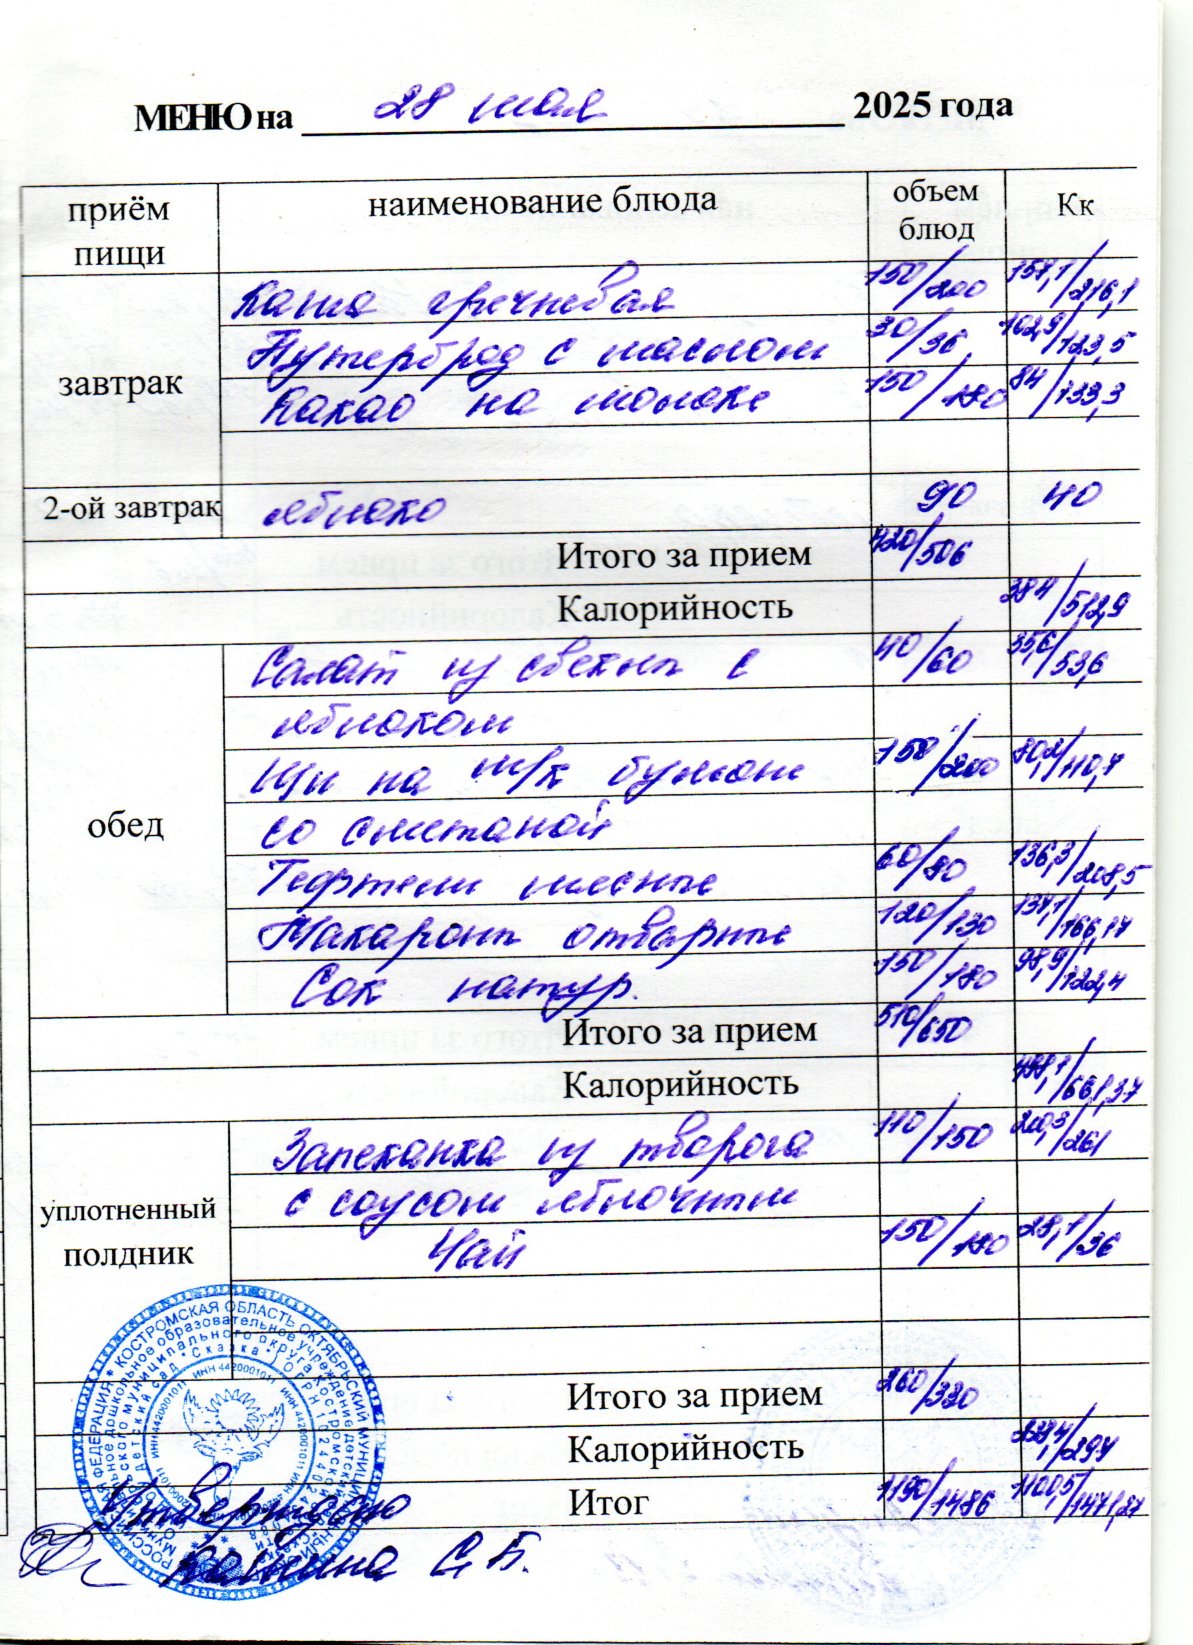 МЕНЮ на 28 мая 2025 года
приём пищи наименование блюда объем блюд Кк
завтрак Каша гречневая 150/200 157,1/216,1
Бутерброд с маслом 30/36 102,9/123,5
Какао на молоке 150/180 84/133,3
2-ой завтрак яблоко 90 40
Итого за прием 420/506
Калорийность 384/512,9
обед Салат из свеклы с 40/60 35,6/53,6
яблоком
Щи на м/к бульоне 150/200 80,2/110,7
со сметаной
Тефтели мясные 60/80 136,3/208,5
Макароны отварные 120/130 137,1/166,17
Сок натур. 150/180 98,9/122,4
Итого за прием 510/650
Калорийность 488,1/661,37
уплотненный полдник Запеканка из творога 110/150 210,3/261
с соусом яблочным
Чай 150/180 28,1/36
Итого за прием 260/320
Калорийность /297
Итог 1190/1486 1100,5/1471,27
РОССИЙСКАЯ ФЕДЕРАЦИЯ * КОСТРОМСКАЯ ОБЛАСТЬ ОКТЯБРЬСКИЙ МУНИЦИПАЛЬНЫЙ
дошкольное образовательное учреждение детский
муниципального округа Костромской
детский сад "Сказка"
ИНН 4420001011
Утверждаю
С.Б.